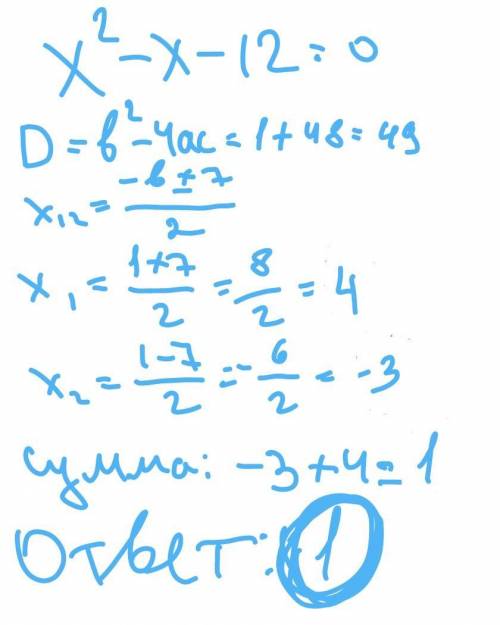 x² - x - 12 = 0
D = b² - 4ac = 1 + 48 = 49
x₁₂ = (-b ± 7)/2
x₁ = (1+7)/2 = 8/2 = 4
x₂ = (1-7)/2 = -6/2 = -3
сумма: -3 + 4 = 1
Ответ: 1